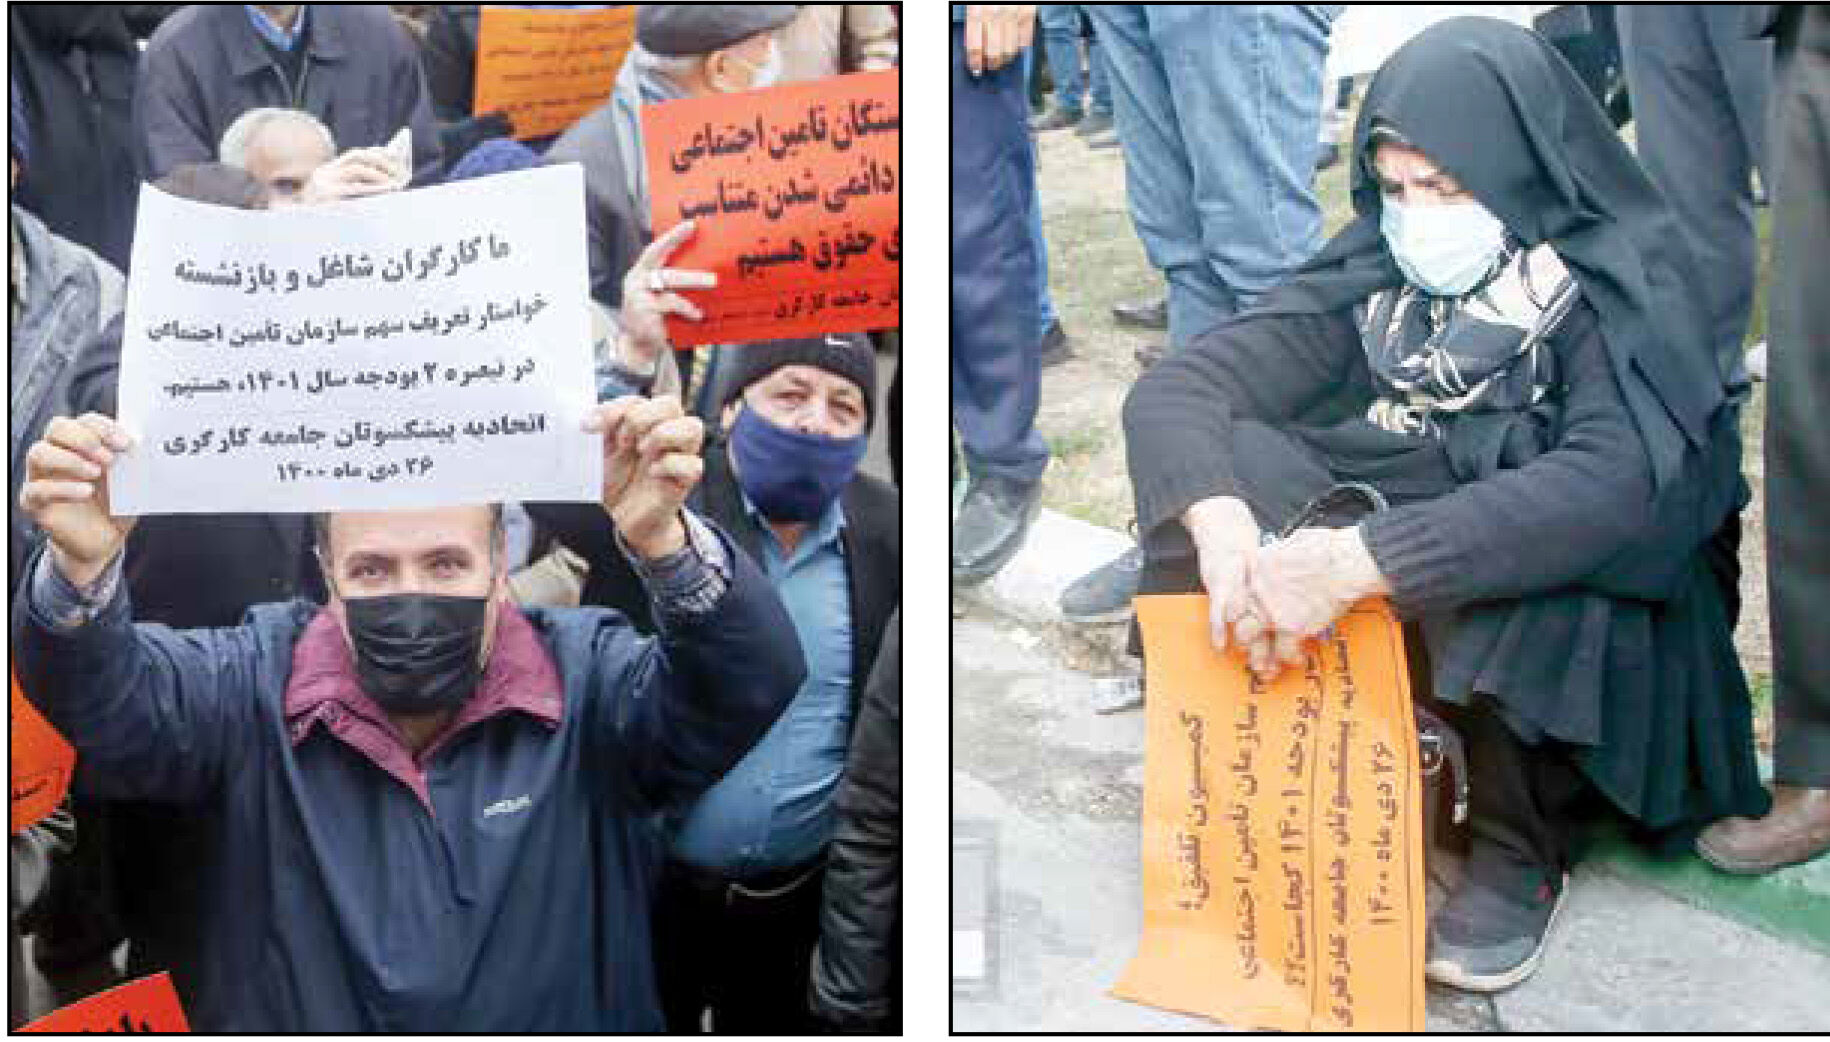 ما کارگران شاغل و بازنشسته
خواستار تعریف سهم سازمان تامین اجتماعی
در تبصره ۲ بودجه سال ۱۴۰۱، هستیم.
اتحادیه پیشکسوتان جامعه کارگری
۲۶ دی ماه ۱۴۰۰
ستگان تامین اجتماعی
دائمی شدن متناسب
ی حقوق هستیم
ان جامعه کارگری
کمیسیون تلفیق؛
م سازمان تامین اجتماعی
در بودجه ۱۴۰۱ کجاست؟؟
اتحادیه پیشکسوتان جامعه کارگری
۲۶ دی ماه ۱۴۰۰